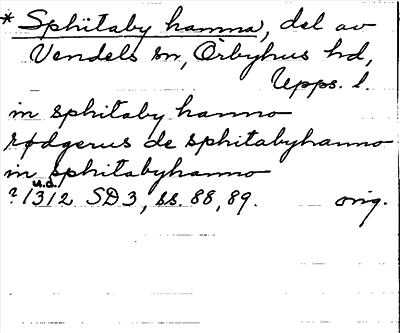 * Sphitaby hamna, del av
Vendels sn, Örbyhus hd,
Upps. l.
in sphitaby hamno
rødgerus de sphitabyhamno
in sphitabyhamno
u.d.
? 1312 SD 3, ss. 88, 89. orig.